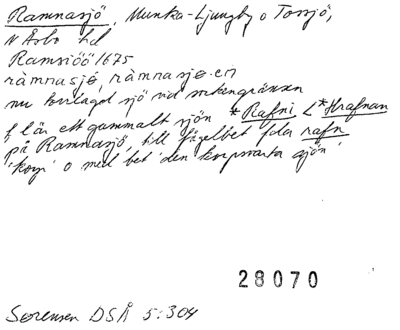 Ramnasjö, Munka-Ljungby o Tossjö,
N Åsbo hd
Ramsiöö 1675
ràmnasjø, ràmnasjø·en
nu torrlagd sjö vid sockengränsen
f lär ett gammalt sjön *Rafni < *Hrafnan
på Ramnasjö, till fågelbet fda rafn
'korp' o med bet 'den korpsvarta sjön'
28070
Sørensen DSÅ 5:304